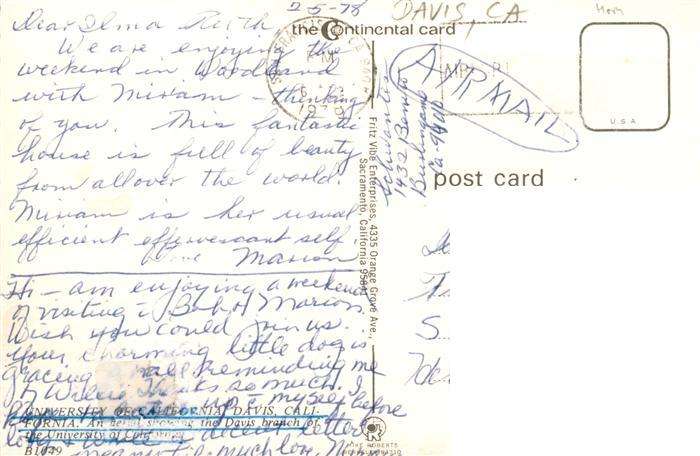 2-5-78
DAVIS, CA
Dear Ilma Ruth
We are enjoying the
weekend in Woodland
with Miriam - thinking
of you. This fantastic
house is full of beauty
from all over the world.
Miriam is her usual
efficient effervescent self.
Love Marion
Hi - am enjoying a weekend
of visiting c Bob & Marion.
Wish you could join us.
Your charming little dog is
gracing a wall reminding me
of Thanks so much. I
up c myself before
long & write a decent letter.
meantime much love,
UNIVERSITY OF CALIFORNIA, DAVIS, CALI-
FORNIA. An aerial showing the Davis branch of
the University of California
B1049
the Continental card
PM
AIR MAIL
U S A
1432 Benito
Burlingame
Ca 94010
post card
Fritz Vibe Enterprises, 4335 Orange Grove Ave.,
Sacramento, California 95841
MIKE ROBERTS